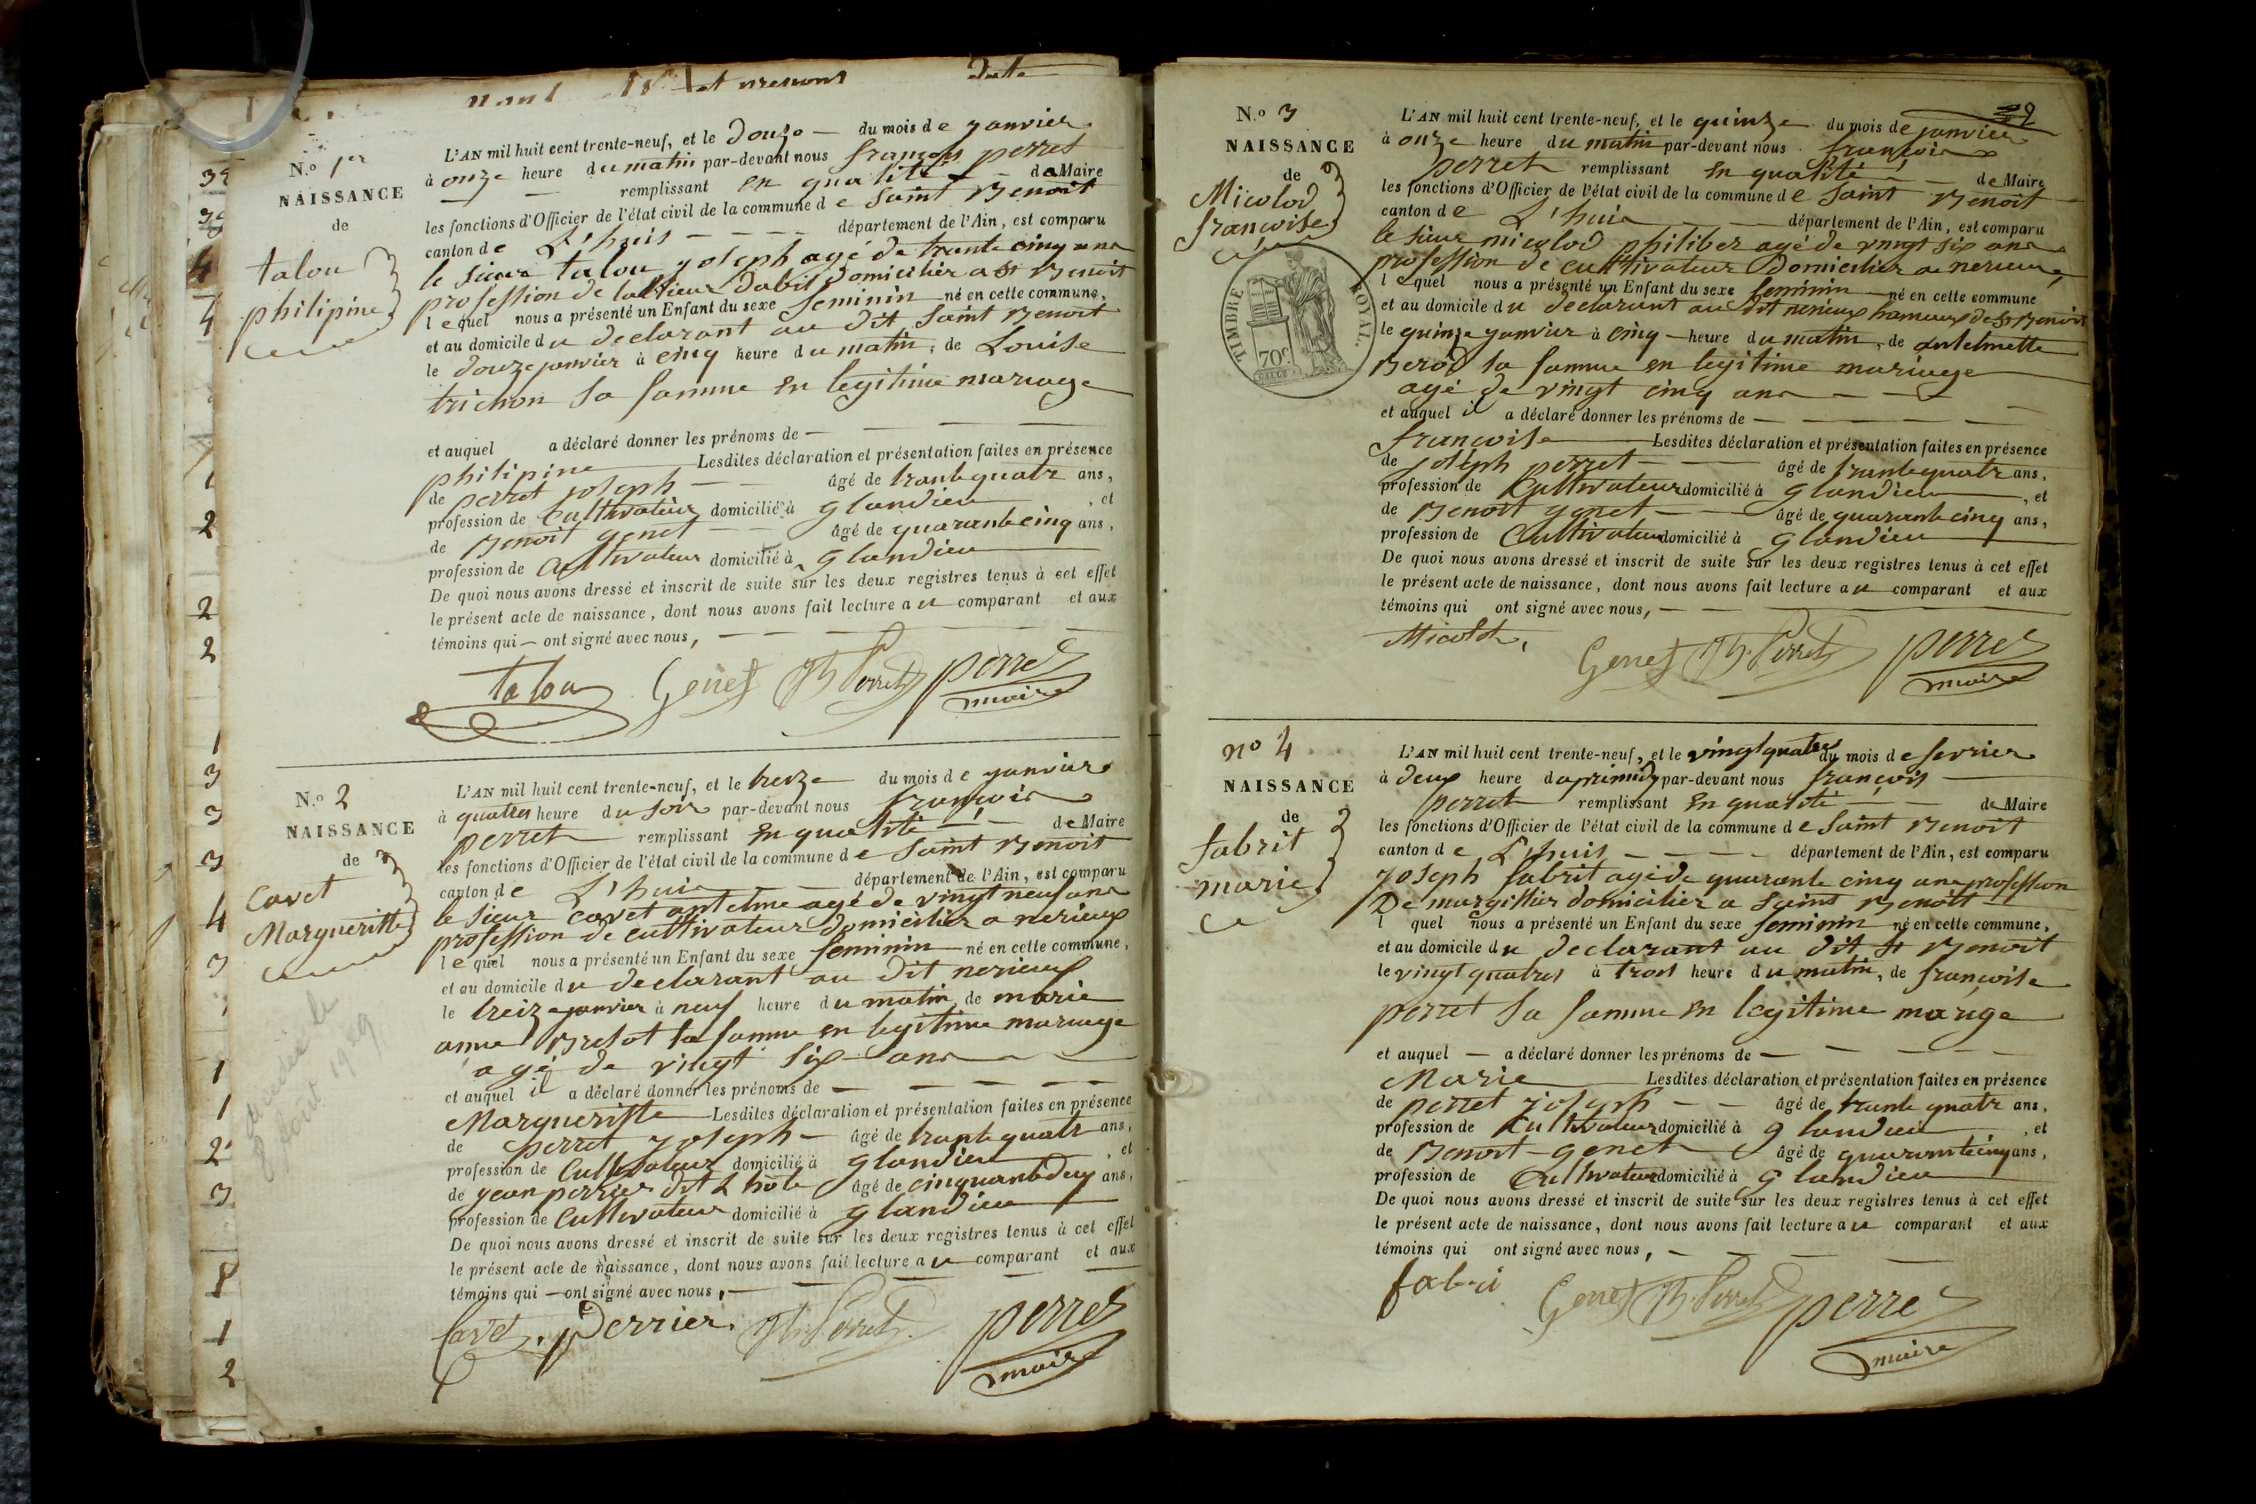 N.º 1er
NAISSANCE
de
talou
philipine
L'AN mil huit cent trente-neuf, et le douze du mois de janvier
à onze heure du matin par-devant nous françois perret
remplissant en qualité de Maire
les fonctions d'Officier de l'état civil de la commune de saint Benoit
canton de L'huis département de l'Ain, est comparu
le sieur talou joseph agé de trante cinq ans
profession de tallieur dabit domicilier a st Benoit
lequel nous a présenté un Enfant du sexe feminin né en cette commune,
et au domicile du declarant au dit saint Benoit
le douze janvier à cinq heure du matin, de Louise
trichon sa famme en legitime mariage
et auquel a déclaré donner les prénoms de
philipine Lesdites déclaration et présentation faites en présence
de perret joseph âgé de trante quatr ans,
profession de Cultivateur domicilié à glandieu, et
de Benoit genet âgé de quarante cinq ans,
profession de Cultivateur domicilié à glandieu
De quoi nous avons dressé et inscrit de suite sur les deux registres tenus à cet effet
le présent acte de naissance, dont nous avons fait lecture au comparant et aux
témoins qui ont signé avec nous,
talou Genet Jh Perret perret
maire
N.º 2
NAISSANCE
de
Cavet
Margueritte
L'AN mil huit cent trente-neuf, et le treize du mois de janvier
à quatres heure du soir par-devant nous françois
perret remplissant en qualité de Maire
les fonctions d'Officier de l'état civil de la commune de saint Benoit
canton de L'huis département de l'Ain, est comparu
le sieur cavet antelme agé de vingt neuf ans
profession de cultivateur domicilier a nerieux
lequel nous a présenté un Enfant du sexe feminin né en cette commune,
et au domicile du declarant au dit nerieux
le treize janvier à neuf heure du matin, de marie
anne Brelot sa famme en legitime mariage
agé de vingt six ans
et auquel il a déclaré donner les prénoms de
Margueritte Lesdites déclaration et présentation faites en présence
de perret joseph âgé de trante quatr ans,
profession de Cultivateur domicilié à glandieu, et
de jean perrier dit L hote âgé de cinquante deux ans,
profession de Cultivateur domicilié à glandieu
De quoi nous avons dressé et inscrit de suite sur les deux registres tenus à cet effet
le présent acte de naissance, dont nous avons fait lecture au comparant et aux
témoins qui ont signé avec nous,
Cavet. Perrier. Jh Perret. perret
maire
N.º 3
NAISSANCE
de
Micolod
françoise
TIMBRE ROYAL.
70c
L'AN mil huit cent trente-neuf, et le quinze du mois de janvier
à onze heure du matin par-devant nous françois
perret remplissant en qualité de Maire
les fonctions d'Officier de l'état civil de la commune de saint Benoit
canton de L'huis département de l'Ain, est comparu
le sieur micolod philiber agé de vingt six ans
profession de cultivateur Domicilier a nerieux
lequel nous a présenté un Enfant du sexe feminin né en cette commune
et au domicile du declarant au dit nerieux hameaux de st Benoit
le quinze janvier à cinq heure du matin, de antelmette
Berod sa famme en legitime mariage
agé de vingt cinq ans
et auquel il a déclaré donner les prénoms de
françoise Lesdites déclaration et présentation faites en présence
de joseph perret âgé de trante quatr ans,
profession de Cultivateur domicilié à glandieu, et
de Benoit genet âgé de quarante cinq ans,
profession de Cultivateur domicilié à glandieu
De quoi nous avons dressé et inscrit de suite sur les deux registres tenus à cet effet
le présent acte de naissance, dont nous avons fait lecture au comparant et aux
témoins qui ont signé avec nous,
Micolod, Genet Jh. Perret perret
maire
nº 4
NAISSANCE
de
fabrit
marie
L'AN mil huit cent trente-neuf, et le vingt quatre du mois de fevrier
à deux heure daprimidy par-devant nous françois
perret remplissant en qualité de Maire
les fonctions d'Officier de l'état civil de la commune de saint Benoit
canton de L'huis département de l'Ain, est comparu
joseph fabrit agé de quarante cinq ans profession
De margillier domicilier a saint Benoitt
l quel nous a présenté un Enfant du sexe feminin né en cette commune,
et au domicile du declarant au dit st Benoit
le vingt quatres à trois heure du matin, de françoise
perret sa famme en legitime marige
et auquel a déclaré donner les prénoms de
Marie Lesdites déclaration et présentation faites en présence
de perret joseph âgé de trante quatr ans,
profession de Cultivateur domicilié à glandieu, et
de Benoit genet âgé de quarante cinq ans,
profession de Cultivateur domicilié à glandieu
De quoi nous avons dressé et inscrit de suite sur les deux registres tenus à cet effet
le présent acte de naissance, dont nous avons fait lecture au comparant et aux
témoins qui ont signé avec nous,
fabri Genet Jh. Perret perret
maire